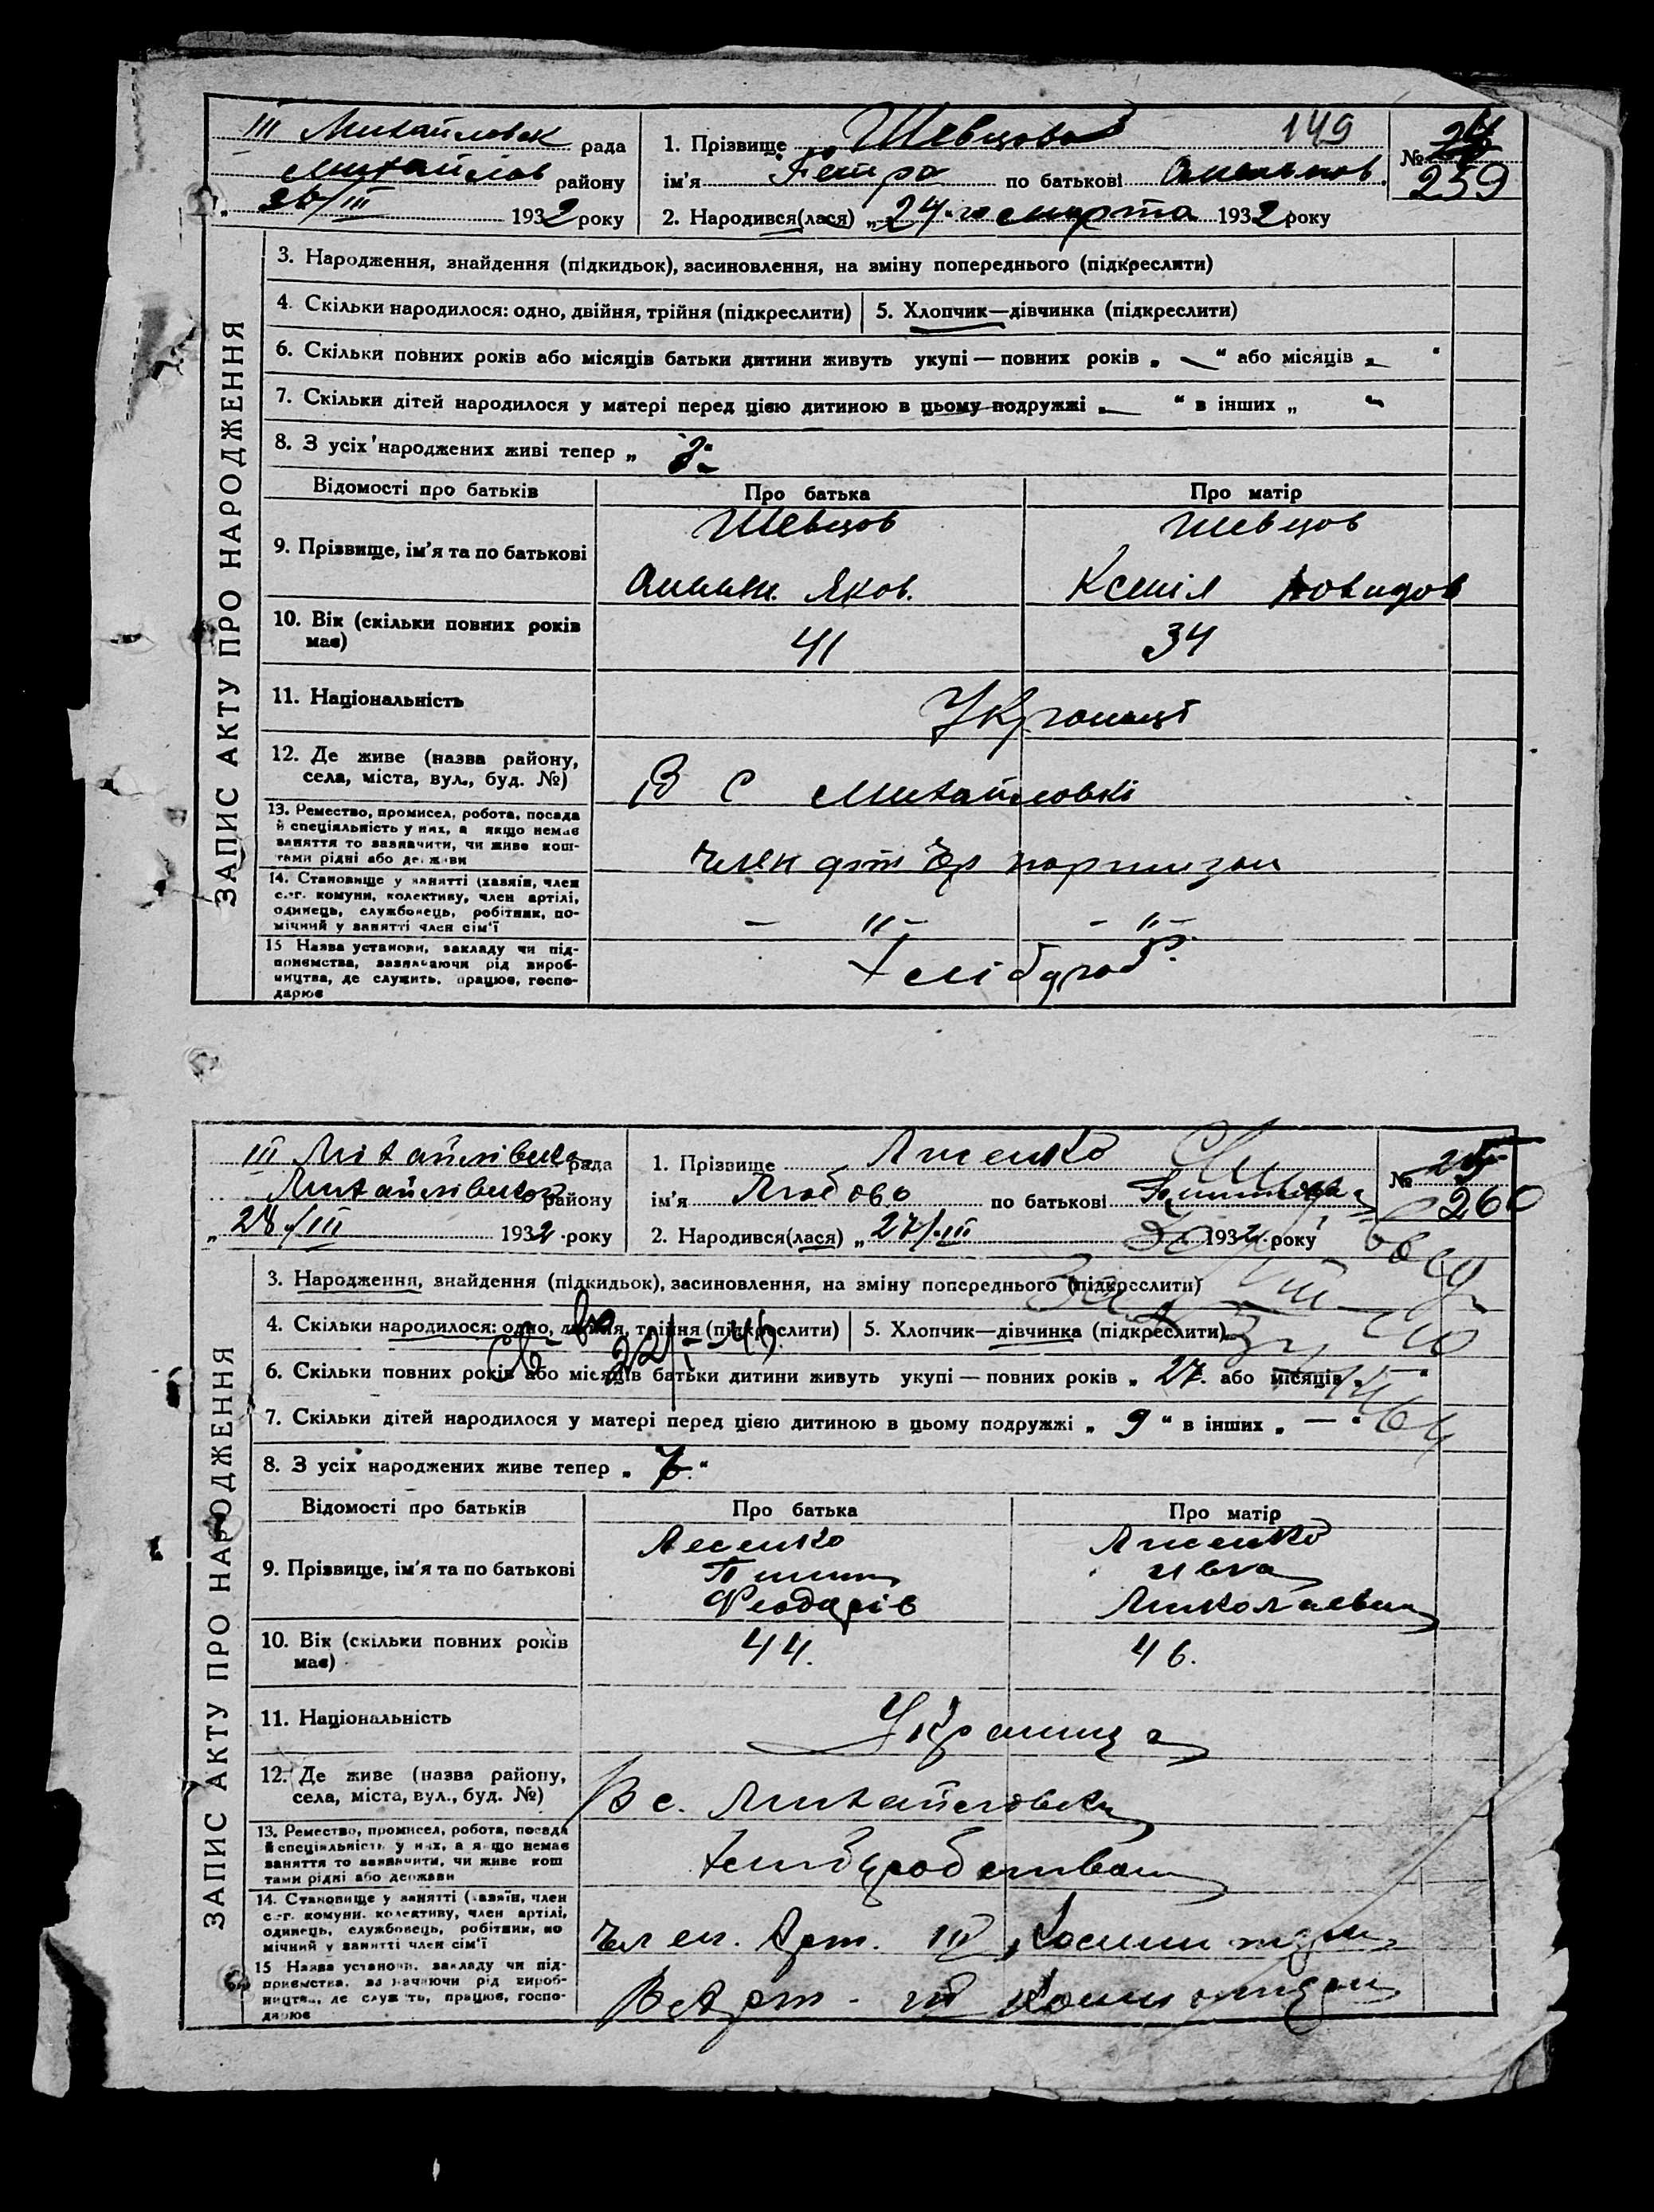 III Михайловск рада
Михайлов району
26/III 1932 року
1. Прізвище Шевцов 149
ім'я Петро по батькові Омельков.
2. Народився(лася) „24-го марта 1932 року
№ 24
259
ЗАПИС АКТУ ПРО НАРОДЖЕННЯ
3. Народження, знайдення (підкидьок), засиновлення, на зміну попереднього (підкреслити)
4. Скільки народилося: одно, двійня, трійня (підкреслити) 5. Хлопчик—дівчинка (підкреслити)
6. Скільки повних років або місяців батьки дитини живуть укупі — повних років „ — “ або місяців „ “
7. Скільки дітей народилося у матері перед цією дитиною в цьому подружжі „ — “ в інших „ “
8. З усіх народжених живі тепер „
Відомості про батьків Про батька Про матір
9. Прізвище, ім'я та по батькові
Шевцов Шевцов
Яков. Ксенія
10. Вік (скільки повних років має) 41 34
11. Національність
12. Де живе (назва району, села, міста, вул., буд. №)
В с Михайловкі
13. Ремество, промисел, робота, посада й спеціяльність у них, а якщо немає заняття то зазначити, чи живе коштами рідні або держави
член арт Чер партизан
14. Становище у занятті (хазяїн, член с.-г. комуни, колективу, член артілі, одинець, службовець, робітник, помічний у занятті член сім'ї
— " — — " —
15 Назва установи, закладу чи підприємства, зазначаючи рід виробництва, де служить, працює, господарює
Хлібороб.
III Михайлівська рада
Михайлівськ району
„ 28/III 1932 року
1. Прізвище Лисенко
ім'я Любовь по батькові
2. Народився(лася) „ 27/III 1932 року
№ 25
260
ЗАПИС АКТУ ПРО НАРОДЖЕННЯ
3. Народження, знайдення (підкидьок), засиновлення, на зміну попереднього (підкреслити)
4. Скільки народилося: одно, двійня, трійня (підкреслити) 5. Хлопчик—дівчинка (підкреслити)
6. Скільки повних років або місяців батьки дитини живуть укупі — повних років „ 27. або місяців „ “
7. Скільки дітей народилося у матері перед цією дитиною в цьому подружжі „ 9 “ в інших „ — “
8. З усіх народжених живе тепер „ 7. “
Відомості про батьків Про батька Про матір
9. Прізвище, ім'я та по батькові
Лесенко Лисенко
Феодарів Миколаевна
10. Вік (скільки повних років має) 44. 46.
11. Національність
Украинци
12. Де живе (назва району, села, міста, вул., буд. №)
В с. Михайловки
13. Ремество, промисел, робота, посада й спеціяльність у них, а якщо немає заняття то зазначити, чи живе коштами рідні або держави
14. Становище у занятті (хазяїн, член с.-г. комуни, колективу, член артілі, одинець, службовець, робітник, помічний у занятті член сім'ї
член. Арт. III
15 Назва установи, закладу чи підприємства, зазначаючи рід виробництва, де служить, працює, господарює
В Арт. III